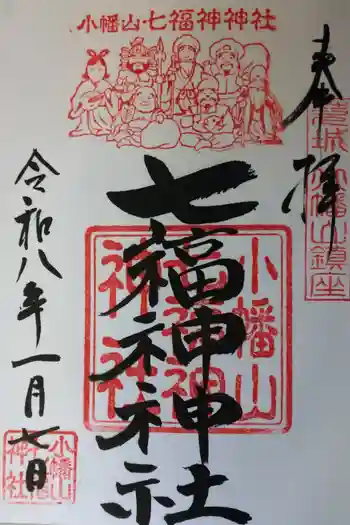 小幡山七福神神社
奉拝
茨城小幡山鎮座
七福神神社
小幡山七福神神社
令和八年一月七日
小幡山七福神神社